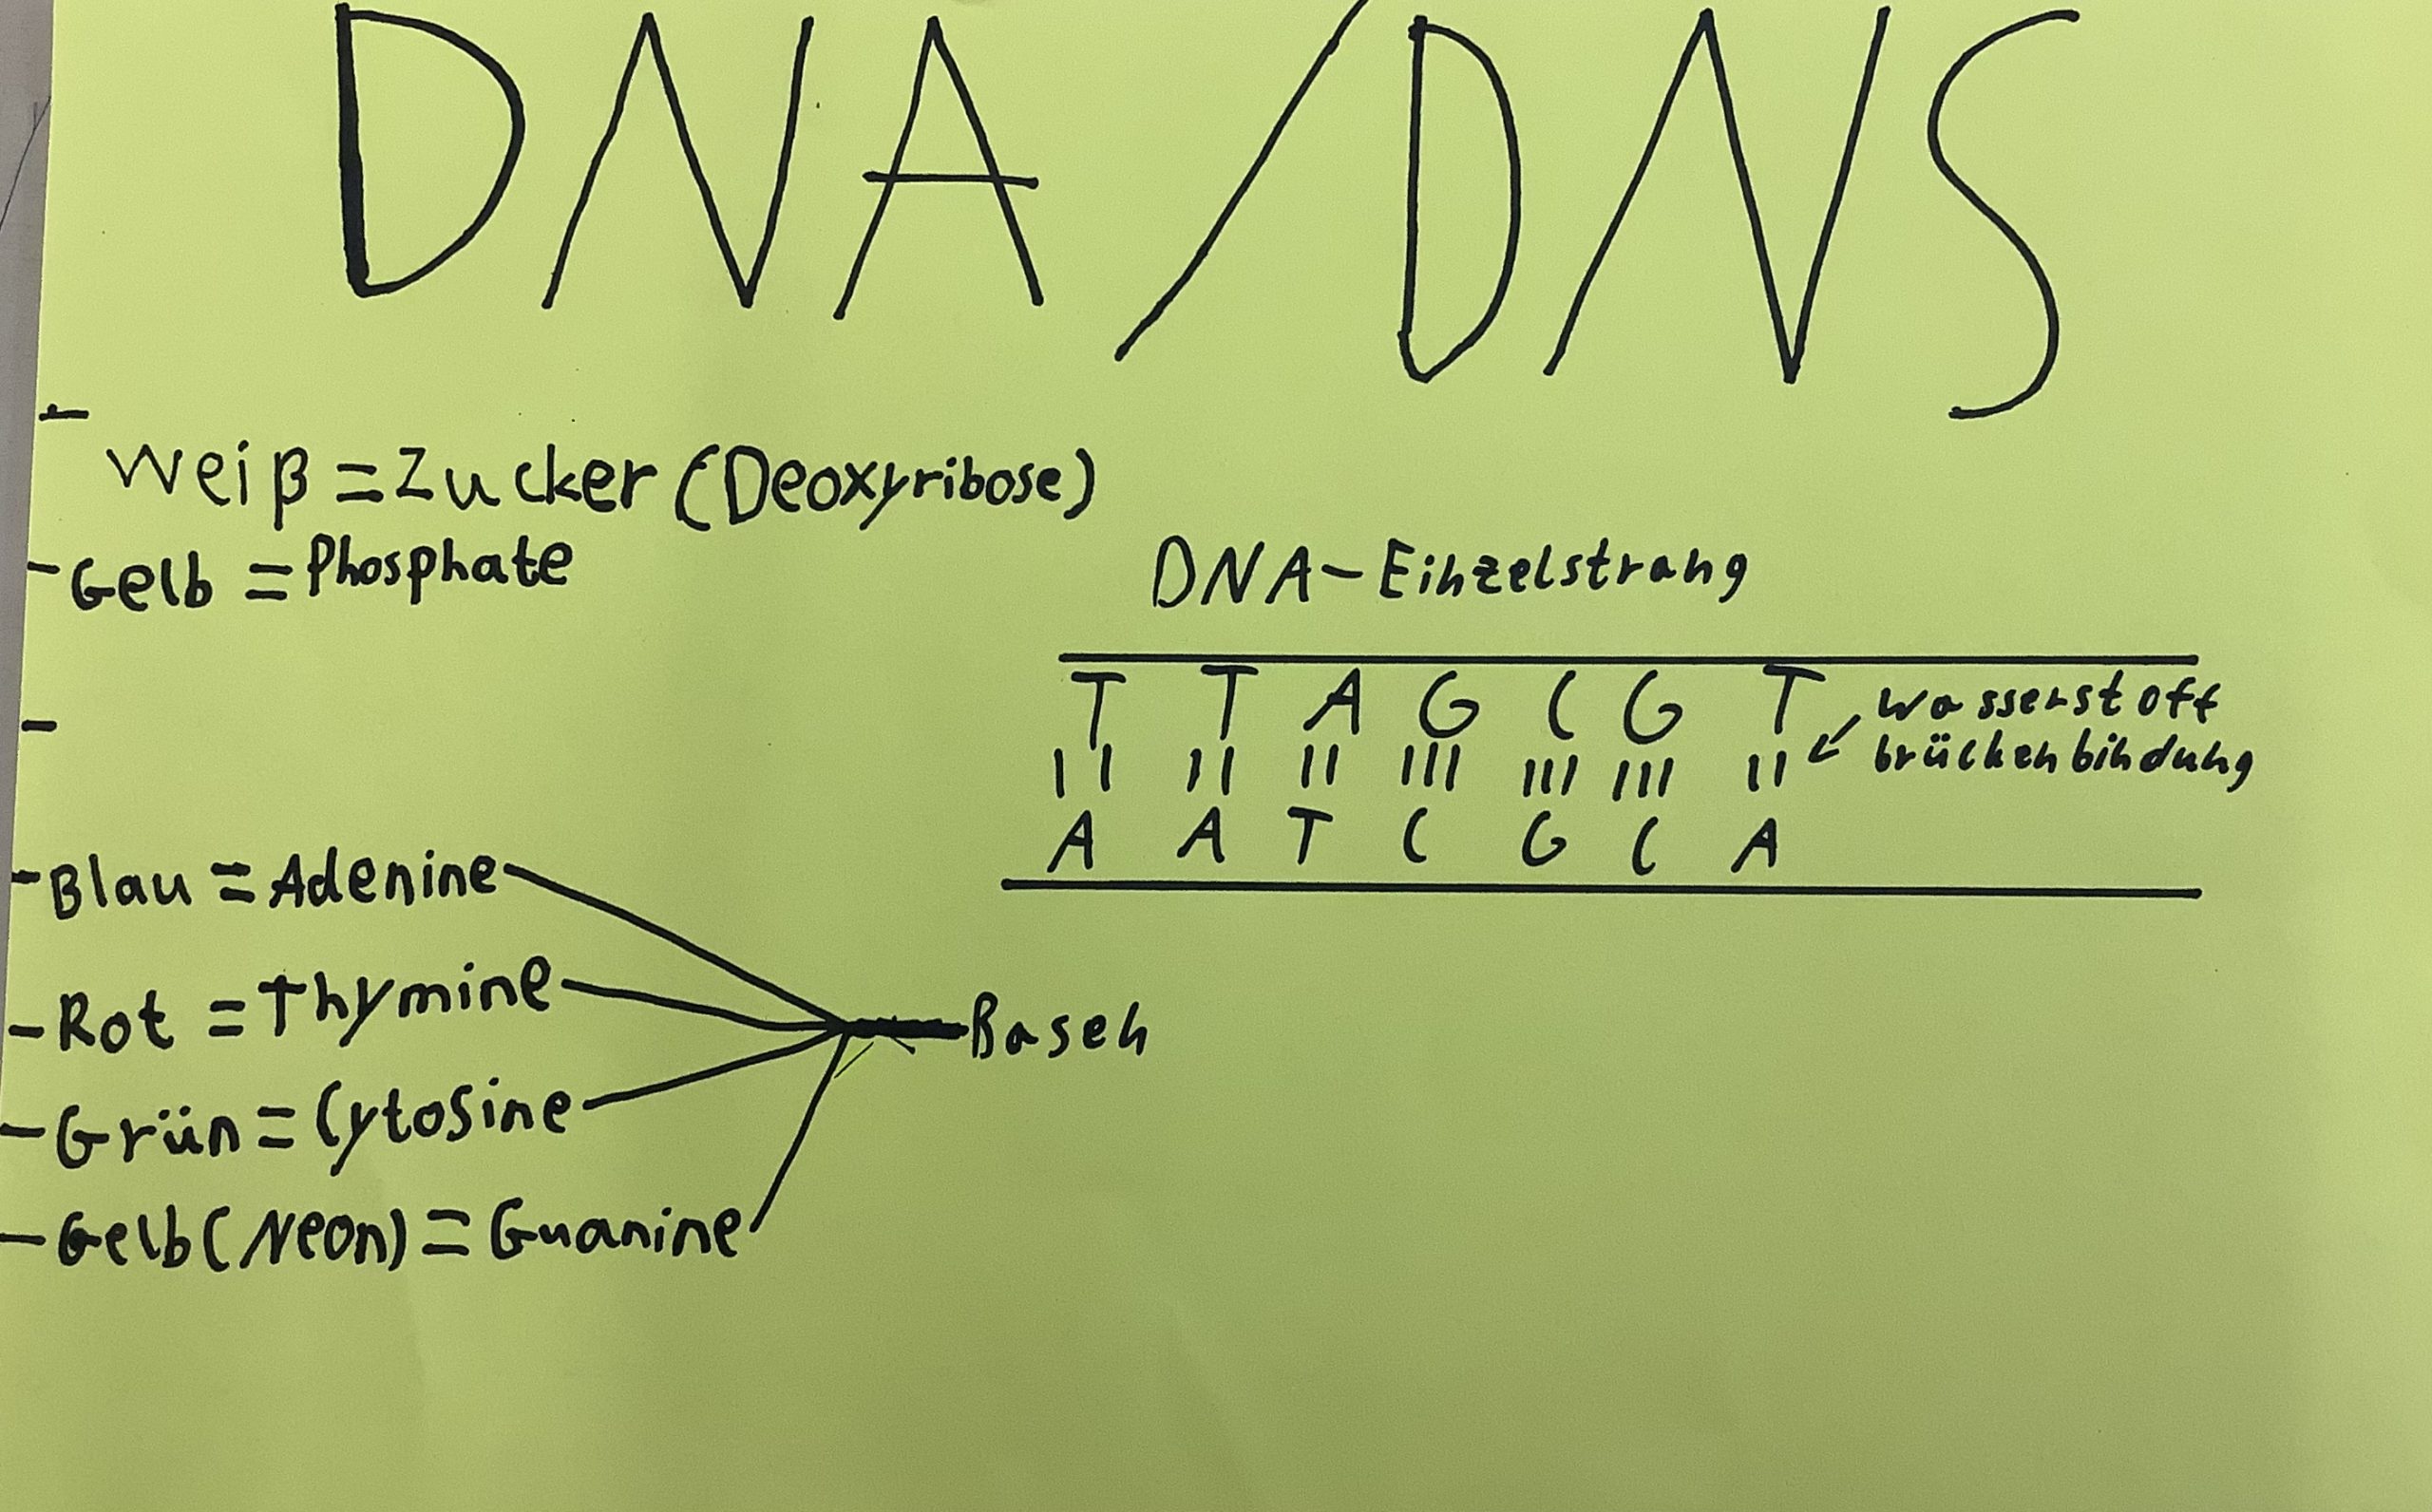 DNA/DNS
-
Weiß = Zucker (Deoxyribose)
- Gelb = Phosphate
-
- Blau = Adenine
- Rot = Thymine
- Grün = Cytosine
- Gelb (Neon) = Guanine
Basen
DNA-Einzelstrang
T T A G C G T
II II II III III III II
A A T C G C A
Wasserstoff
brückenbindung